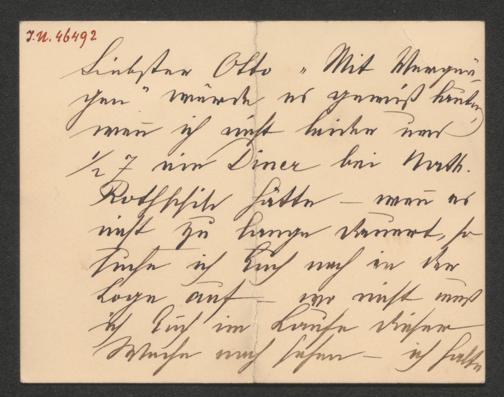 J.N. 46492
Liebster Otto „Mit Vergnü-
gen" würde es gewiß lauten,
wenn ich nicht leider um
1/2 7 ein Diner bei Nath.
Rothschild hätte – wenn es
nicht zu lange dauert, so
suche ich Euch noch in der
Loge auf – wo nicht muß
ich Euch im Laufe dieser
Woche noch sehen – ich halte